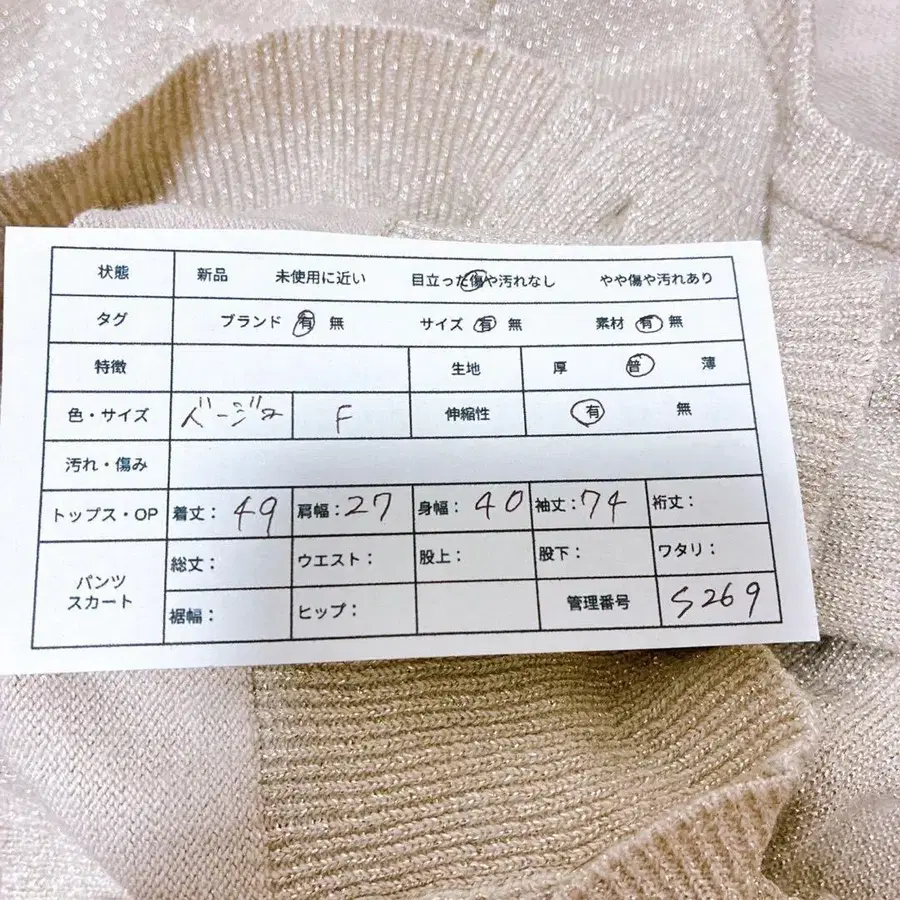 状態 新品 未使用に近い 目立った傷や汚れなし やや傷や汚れあり
タグ ブランド 有 無 サイズ 有 無 素材 有 無
特徴 生地 厚 普 薄
色・サイズ ベージュ F 伸縮性 有 無
汚れ・傷み
トップス・OP 着丈：49 肩幅：27 身幅：40 袖丈：74 裄丈：
パンツ スカート 総丈： ウエスト： 股上： 股下： ワタリ：
裾幅： ヒップ： 管理番号 S269